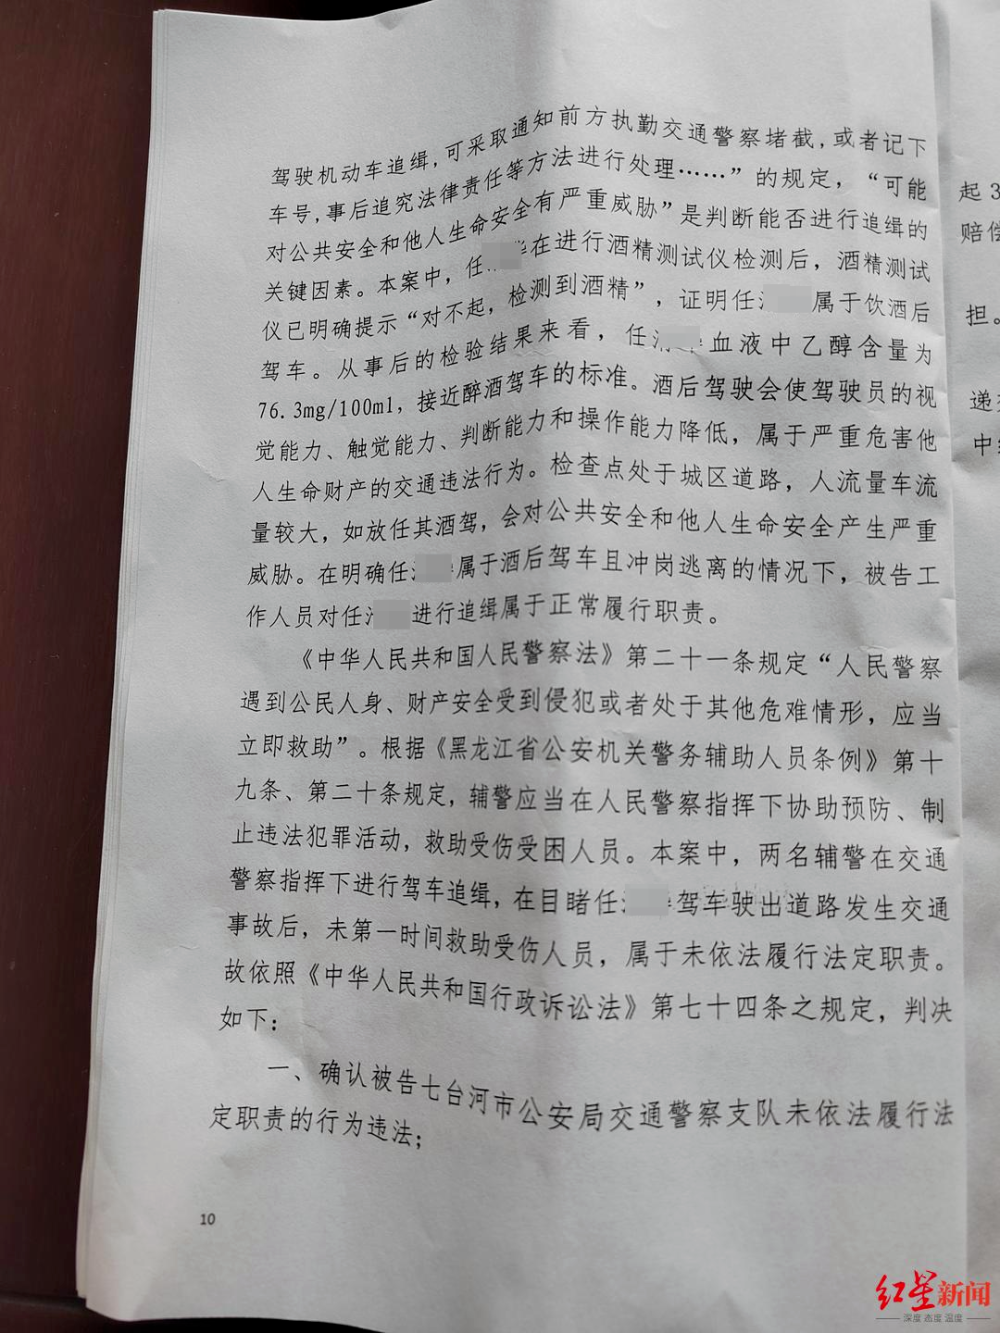 驾驶机动车追缉,可采取通知前方执勤交通警察堵截,或者记下
车号,事后追究法律责任等方法进行处理……”的规定，“可能
对公共安全和他人生命安全有严重威胁”是判断能否进行追缉的
关键因素。本案中，任在进行酒精测试仪检测后，酒精测试
仪已明确提示“对不起，检测到酒精”，证明任属于饮酒后
驾车。从事后的检验结果来看，任血液中乙醇含量为
76.3mg/100ml，接近醉酒驾车的标准。酒后驾驶会使驾驶员的视
觉能力、触觉能力、判断能力和操作能力降低，属于严重危害他
人生命财产的交通违法行为。检查点处于城区道路，人流量车流
量较大，如放任其酒驾，会对公共安全和他人生命安全产生严重
威胁。在明确任属于酒后驾车且冲岗逃离的情况下，被告工
作人员对任进行追缉属于正常履行职责。
《中华人民共和国人民警察法》第二十一条规定“人民警察
遇到公民人身、财产安全受到侵犯或者处于其他危难情形，应当
立即救助”。根据《黑龙江省公安机关警务辅助人员条例》第十
九条、第二十条规定，辅警应当在人民警察指挥下协助预防、制
止违法犯罪活动，救助受伤受困人员。本案中，两名辅警在交通
警察指挥下进行驾车追缉，在目睹任驾车驶出道路发生交通
事故后，未第一时间救助受伤人员，属于未依法履行法定职责。
故依照《中华人民共和国行政诉讼法》第七十四条之规定，判决
如下：
一、确认被告七台河市公安局交通警察支队未依法履行法
定职责的行为违法；
10
起3
赔偿
担。
递
中
红星新闻
深度 态度 温度